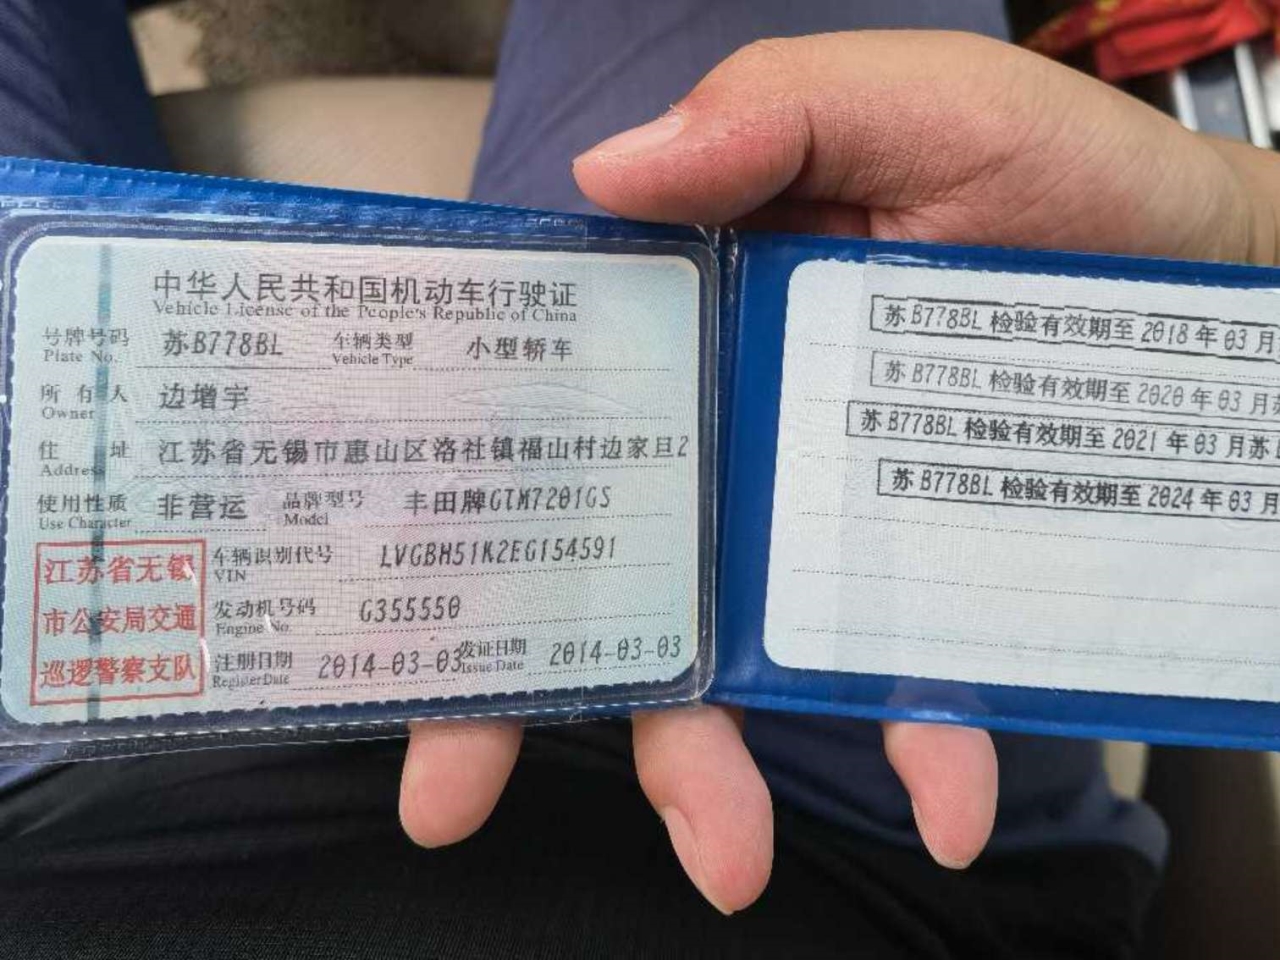 中华人民共和国机动车行驶证
Vehicle License of the People's Republic of China
号牌号码 苏B778BL 车辆类型 小型轿车
Plate No. Vehicle Type
所有人 边增宇
Owner
住址 江苏省无锡市惠山区洛社镇福山村边家旦2
Address
使用性质 非营运 品牌型号 丰田牌GTM7201GS
Use Character Model
江苏省无锡
市公安局交通
巡逻警察支队
车辆识别代号 LVGBH51K2EG154591
VIN
发动机号码 G355550
Engine No.
注册日期 2014-03-03 发证日期 2014-03-03
Register Date Issue Date
苏B778BL 检验有效期至 2018 年 03 月
苏B778BL 检验有效期至 2020 年 03 月
苏B778BL 检验有效期至 2021 年 03 月苏
苏B778BL 检验有效期至 2024 年 03 月